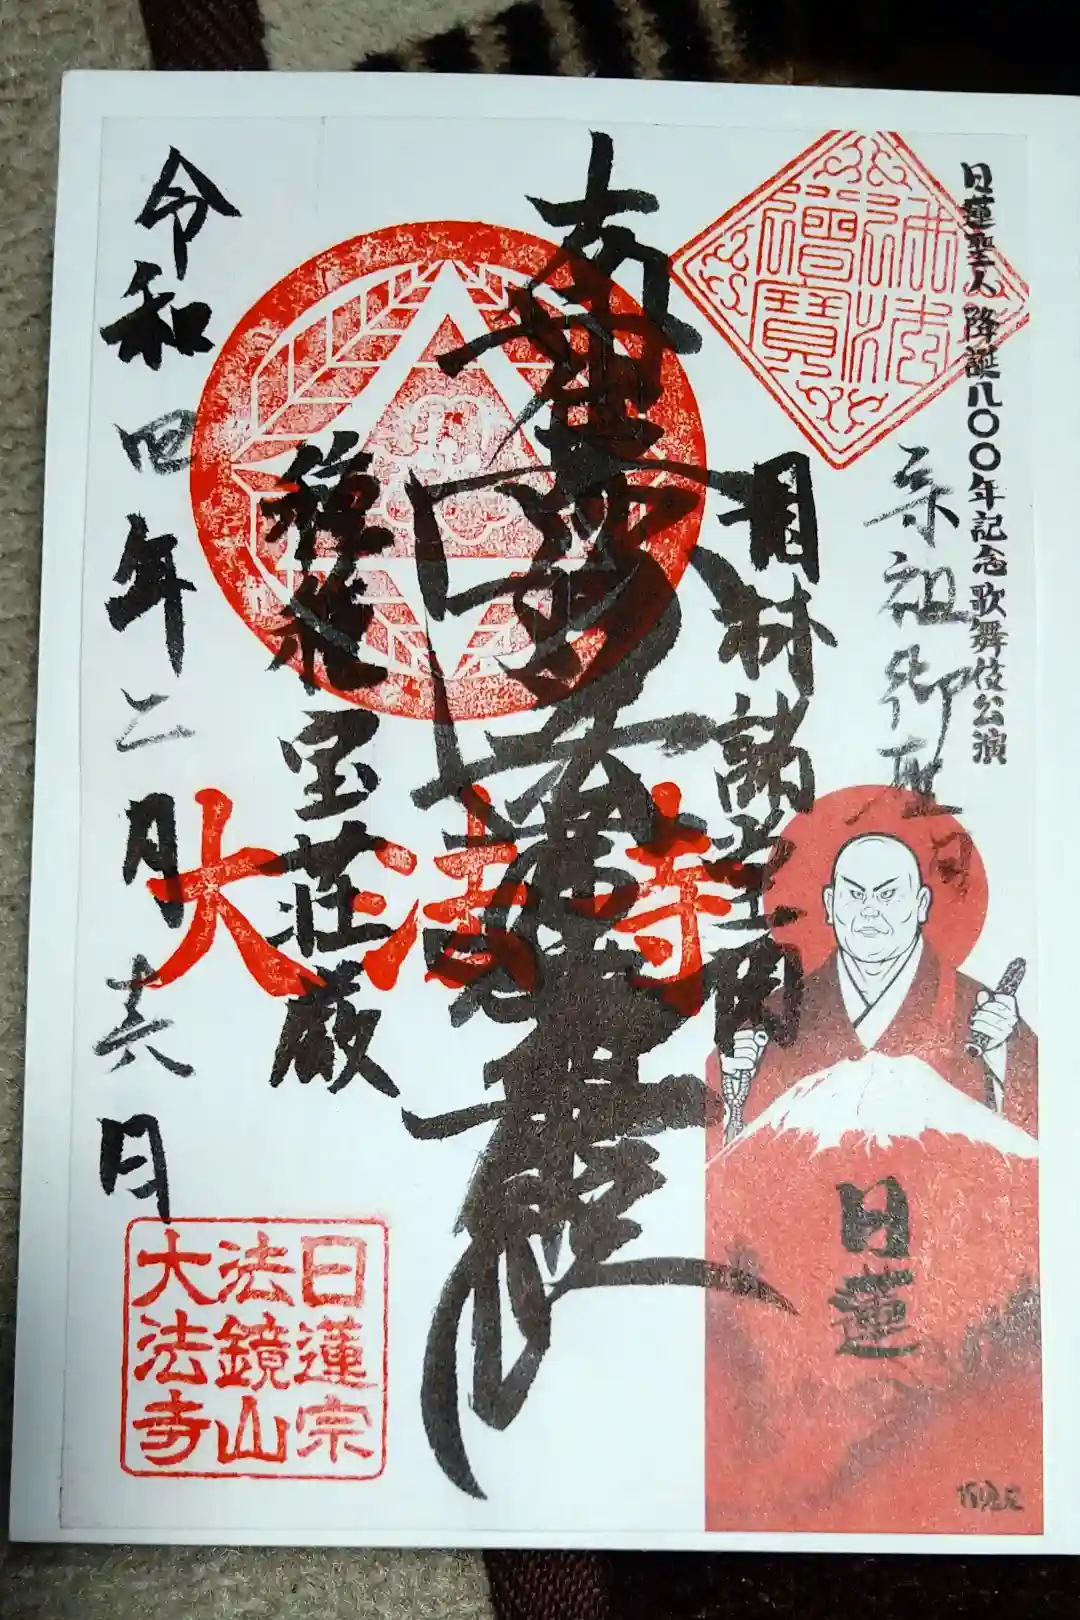 日蓮聖人降誕八〇〇年記念歌舞伎公演
宗祖御聖日
佛法
僧寶
園林諸堂閣
南無妙法蓮華経
種種宝荘厳
大法寺
令和四年二月十六日
日蓮
日蓮宗
法鏡山
大法寺